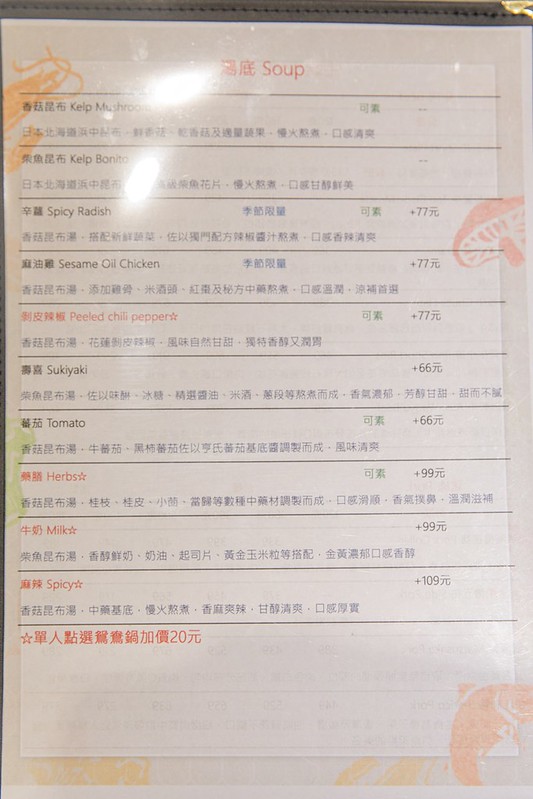 湯底 Soup
香菇昆布 Kelp Mushroom 可素 --
日本北海道浜中昆布、鮮香菇、乾香菇及適量蔬果，慢火熬煮，口感清爽
柴魚昆布 Kelp Bonito --
日本北海道浜中昆布、級柴魚花片，慢火熬煮，口感甘醇鮮美
辛蘿 Spicy Radish 季節限量 可素 +77元
香菇昆布湯，搭配新鮮蔬菜，佐以獨門配方辣椒醬汁熬煮，口感香辣清爽
麻油雞 Sesame Oil Chicken 季節限量 +77元
香菇昆布湯，添加雞骨、米酒頭、紅棗及秘方中藥熬煮，口感溫潤，涼補首選
剝皮辣椒 Peeled chili pepper☆ 可素 +77元
香菇昆布湯，花蓮剝皮辣椒，風味自然甘甜，獨特香醇又潤胃
壽喜 Sukiyaki +66元
柴魚昆布湯，佐以味醂、冰糖、精選醬油、米酒、蔥段等熬煮而成，香氣濃郁，芳醇甘甜，甜而不膩
蕃茄 Tomato 可素 +66元
香菇昆布湯，牛蕃茄、黑柿蕃茄佐以亨氏蕃茄基底醬調製而成，風味清爽
藥膳 Herbs☆ 可素 +99元
香菇昆布湯，桂枝、桂皮、小茴、當歸等數種中藥材調製而成，口感滑順，香氣撲鼻，溫潤滋補
牛奶 Milk☆ +99元
柴魚昆布湯，香醇鮮奶、奶油、起司片、黃金玉米粒等搭配，金黃濃郁口感香醇
麻辣 Spicy☆ +109元
香菇昆布湯，中藥基底，慢火熬煮，香麻爽辣，甘醇清爽，口感厚實
☆單人點選鴛鴦鍋加價20元